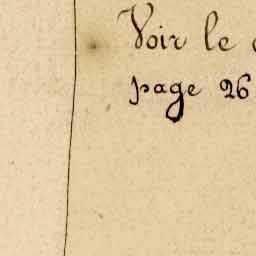 Voir le
page 26